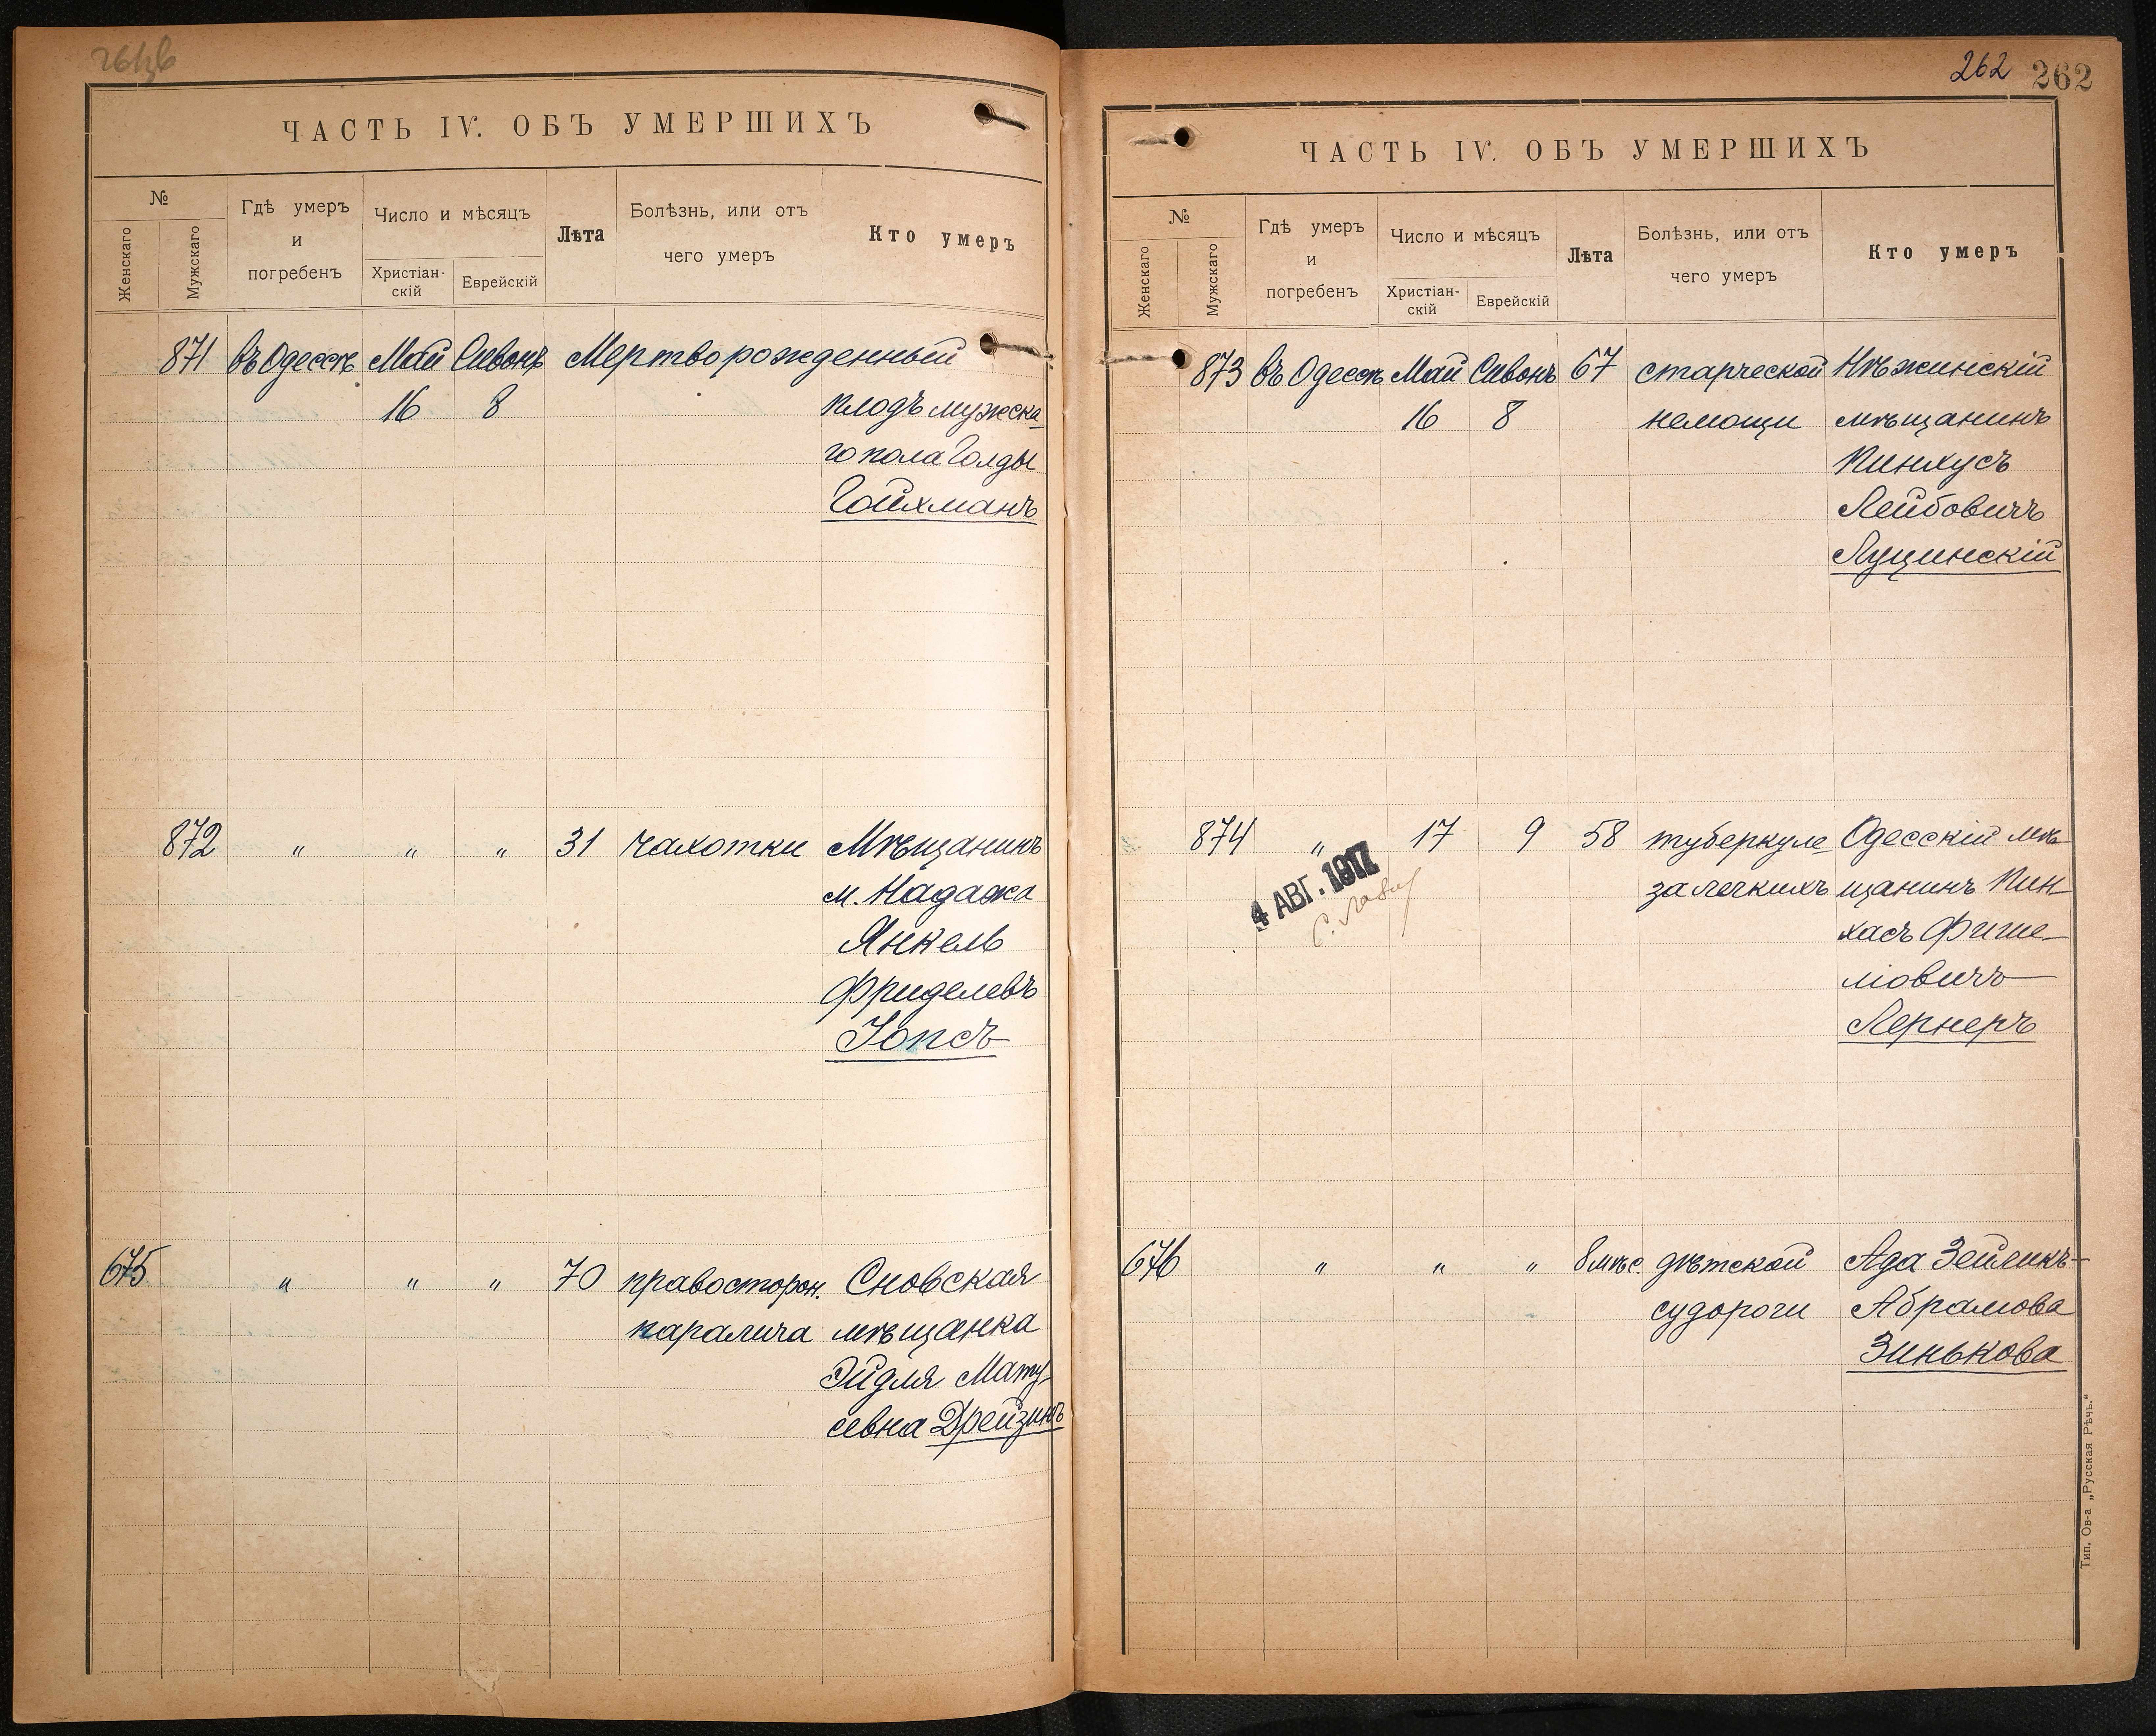 ЧАСТЬ IV. ОБЪ УМЕРШИХЪ
№
Женскаго
Мужскаго
Гдѣ умеръ
и
погребенъ
Число и мѣсяцъ
Христіан-
скій
Еврейскій
Лѣта
Болѣзнь, или отъ
чего умеръ
Кто умеръ
871 въ Одессѣ Май Сивонъ Мертворожденный
16 8 плодъ мужска
го пола Голды
Гойхманъ
872 " " " 31 чахотки Мѣщанинъ
м.
Янкель
Фриделевъ
Іопсъ
675 " " " 70 правосторон. Сновская
паралича мѣщанка
Эйдля Мату-
севна Дрейзинъ
262 262
ЧАСТЬ IV. ОБЪ УМЕРШИХЪ
№
Женскаго
Мужскаго
Гдѣ умеръ
и
погребенъ
Число и мѣсяцъ
Христіан-
скій
Еврейскій
Лѣта
Болѣзнь, или отъ
чего умеръ
Кто умеръ
873 въ Одессѣ Май Сивонъ 67 старческой Нѣжинскій
16 8 немощи мѣщанинъ
Пинхусъ
Лейбовичъ
Лущинскій
874 " 17 9 58 туберкуле Одесскій мѣ
за легкихъ щанинъ Пин
хасъ Фише-
ліовичъ
Лернеръ
4 АВГ. 1917
676 " " " 8 мѣс. дѣтской Ада Зейликъ-
судороги Абрамова
Зинькова
Тип. Ов-а „Русская Рѣчь."